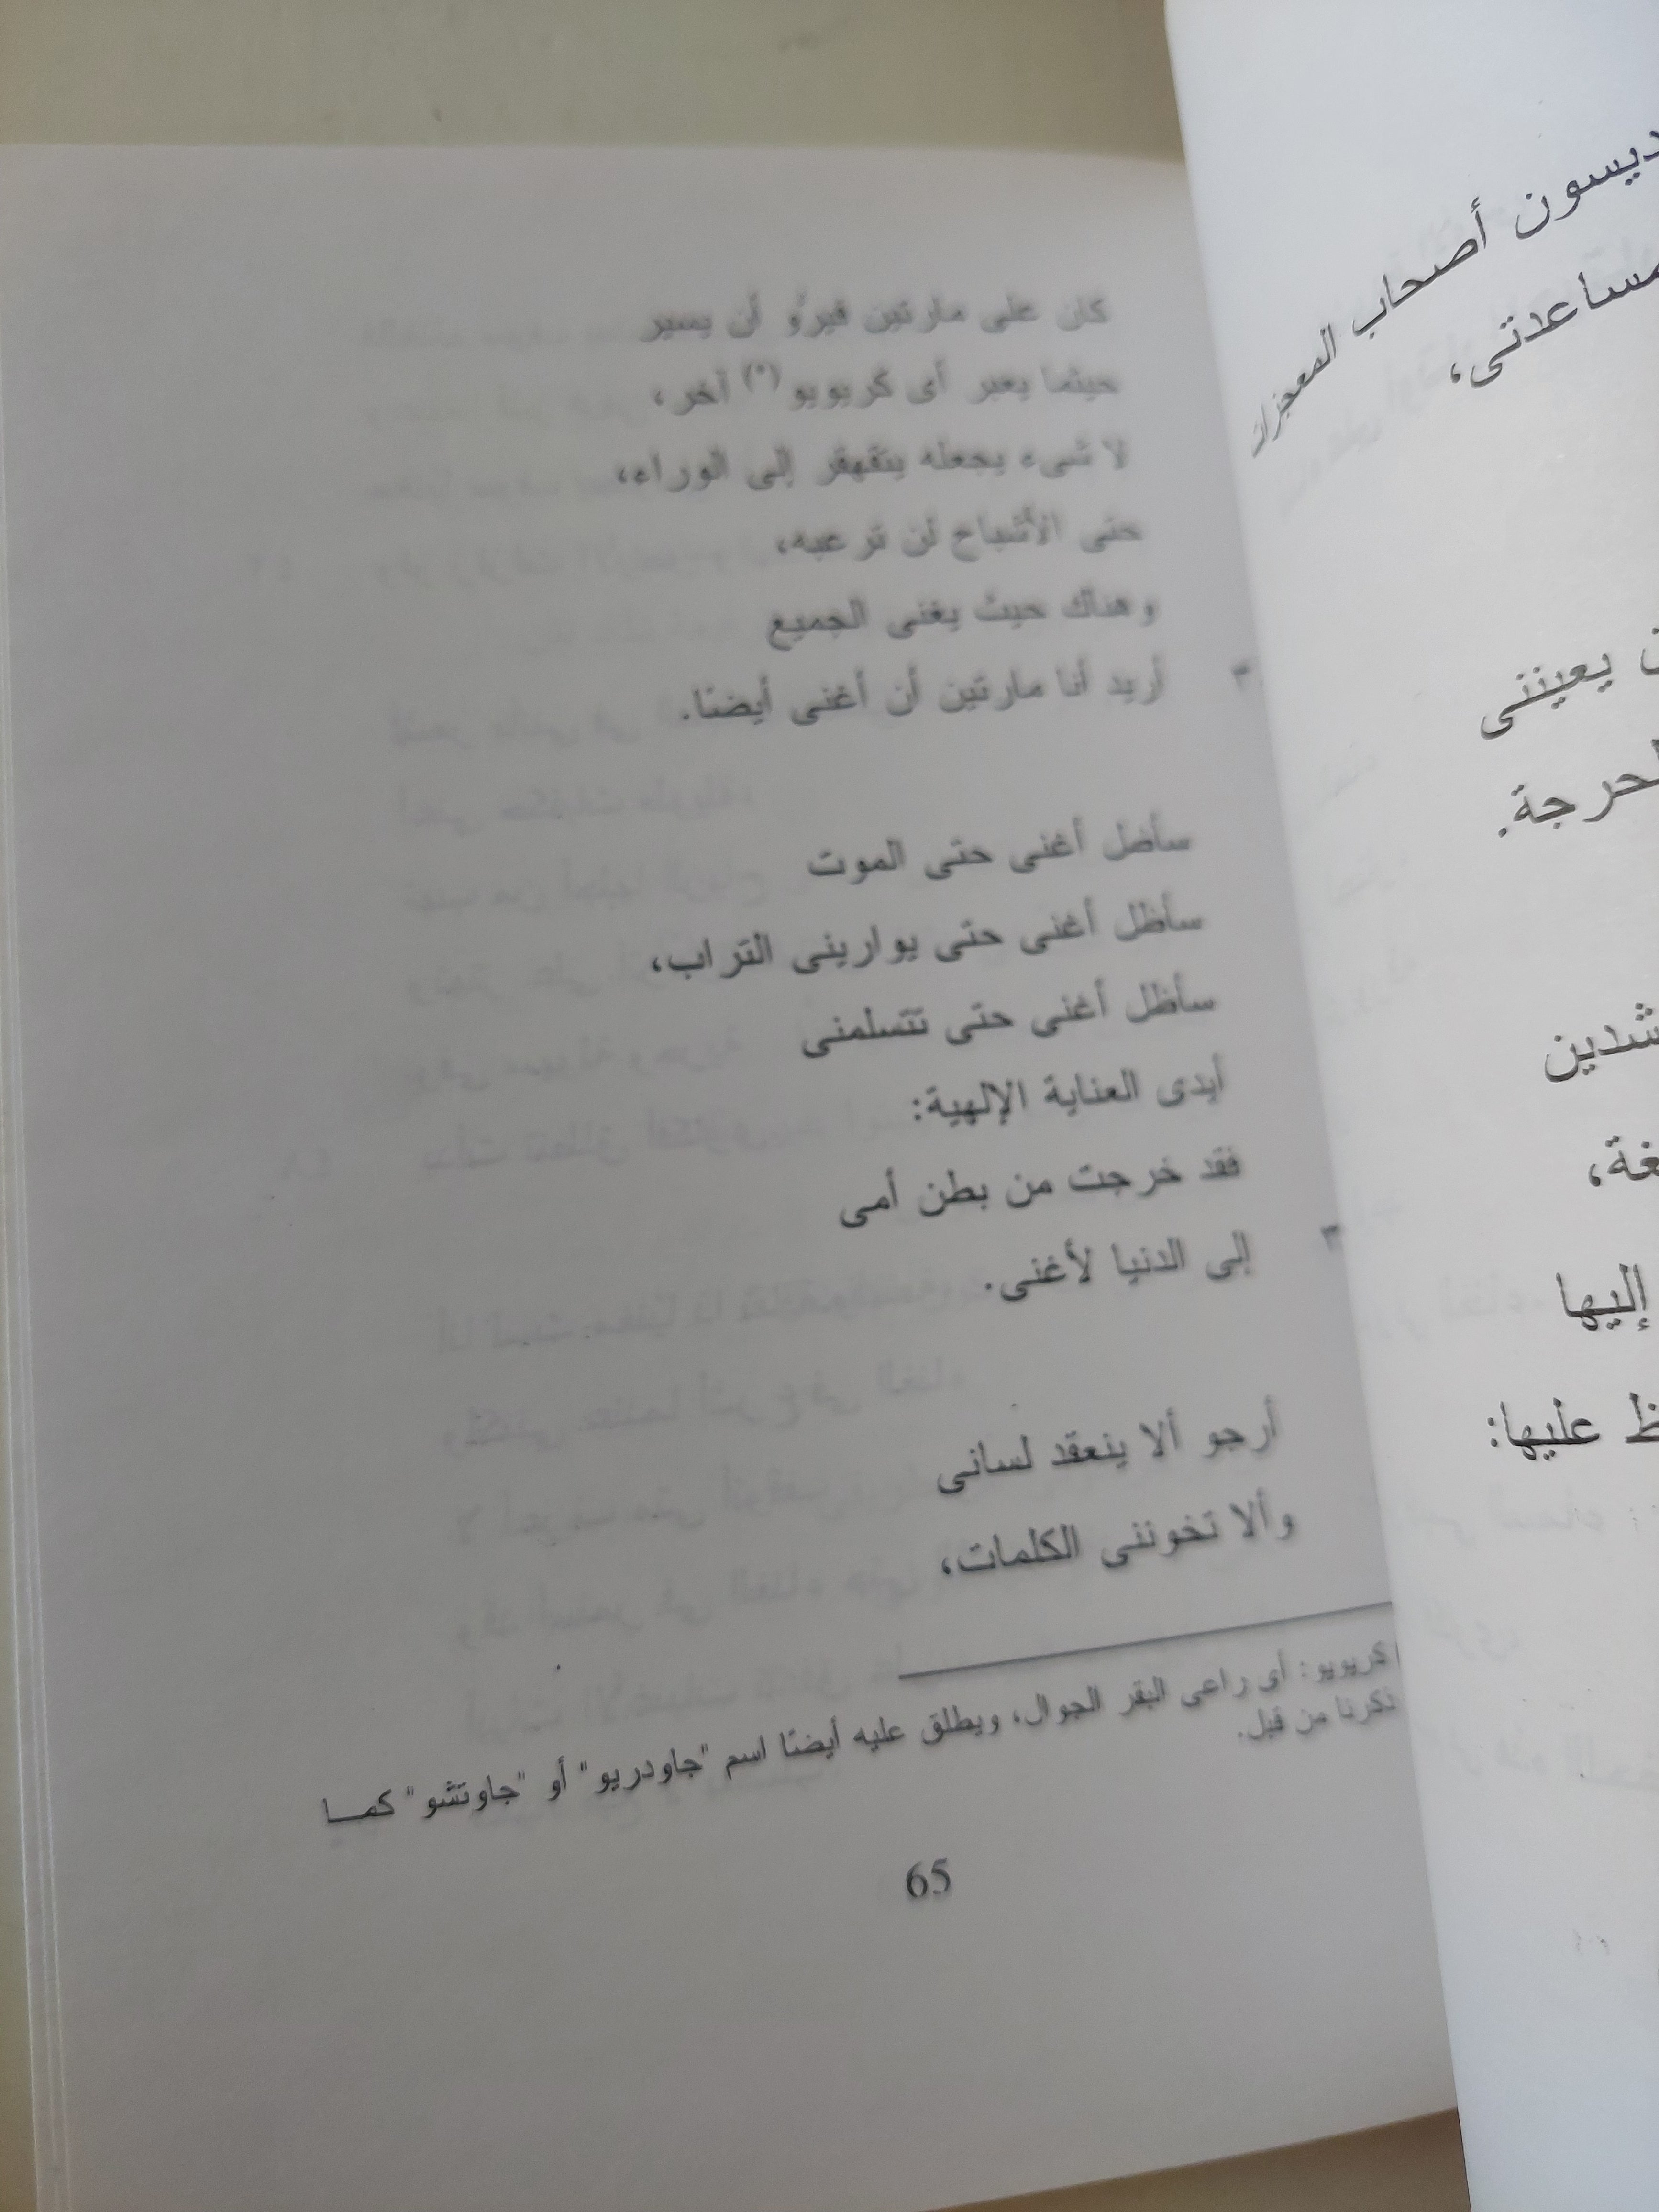 ديسون أصحاب المعجزات
مساعدتى،
يعيننى
لحرجة.
شدين
غة،
إليها
ظ عليها:
كان على مارتين فيرُو أن يسير
حيثما يعبر أى كريويو (*) آخر،
لا شىء يجعله يتقهقر إلى الوراء،
حتى الأشباح لن ترعبه،
وهناك حيث يغنى الجميع
أريد أنا مارتين أن أغنى أيضًا.
سأضل أغنى حتى الموت
سأظل أغنى حتى يوارينى التراب،
سأظل أغنى حتى تتسلمنى
أيدى العناية الإلهية:
فقد خرجت من بطن أمى
إلى الدنيا لأغنى.
أرجو ألا ينعقد لسانى
وألا تخوننى الكلمات،
كريويو: أى راعى البقر الجوال، ويطلق عليه أيضًا اسم "جاودريو" أو "جاوتشو" كمـــا
ذكرنا من قبل.
65